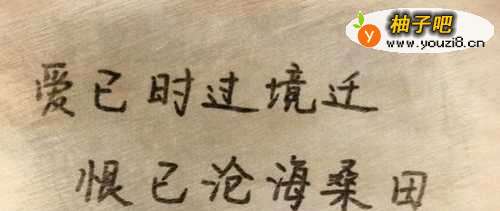 柚子吧
www.youzi8.cn
爱已时过境迁
恨已沧海桑田